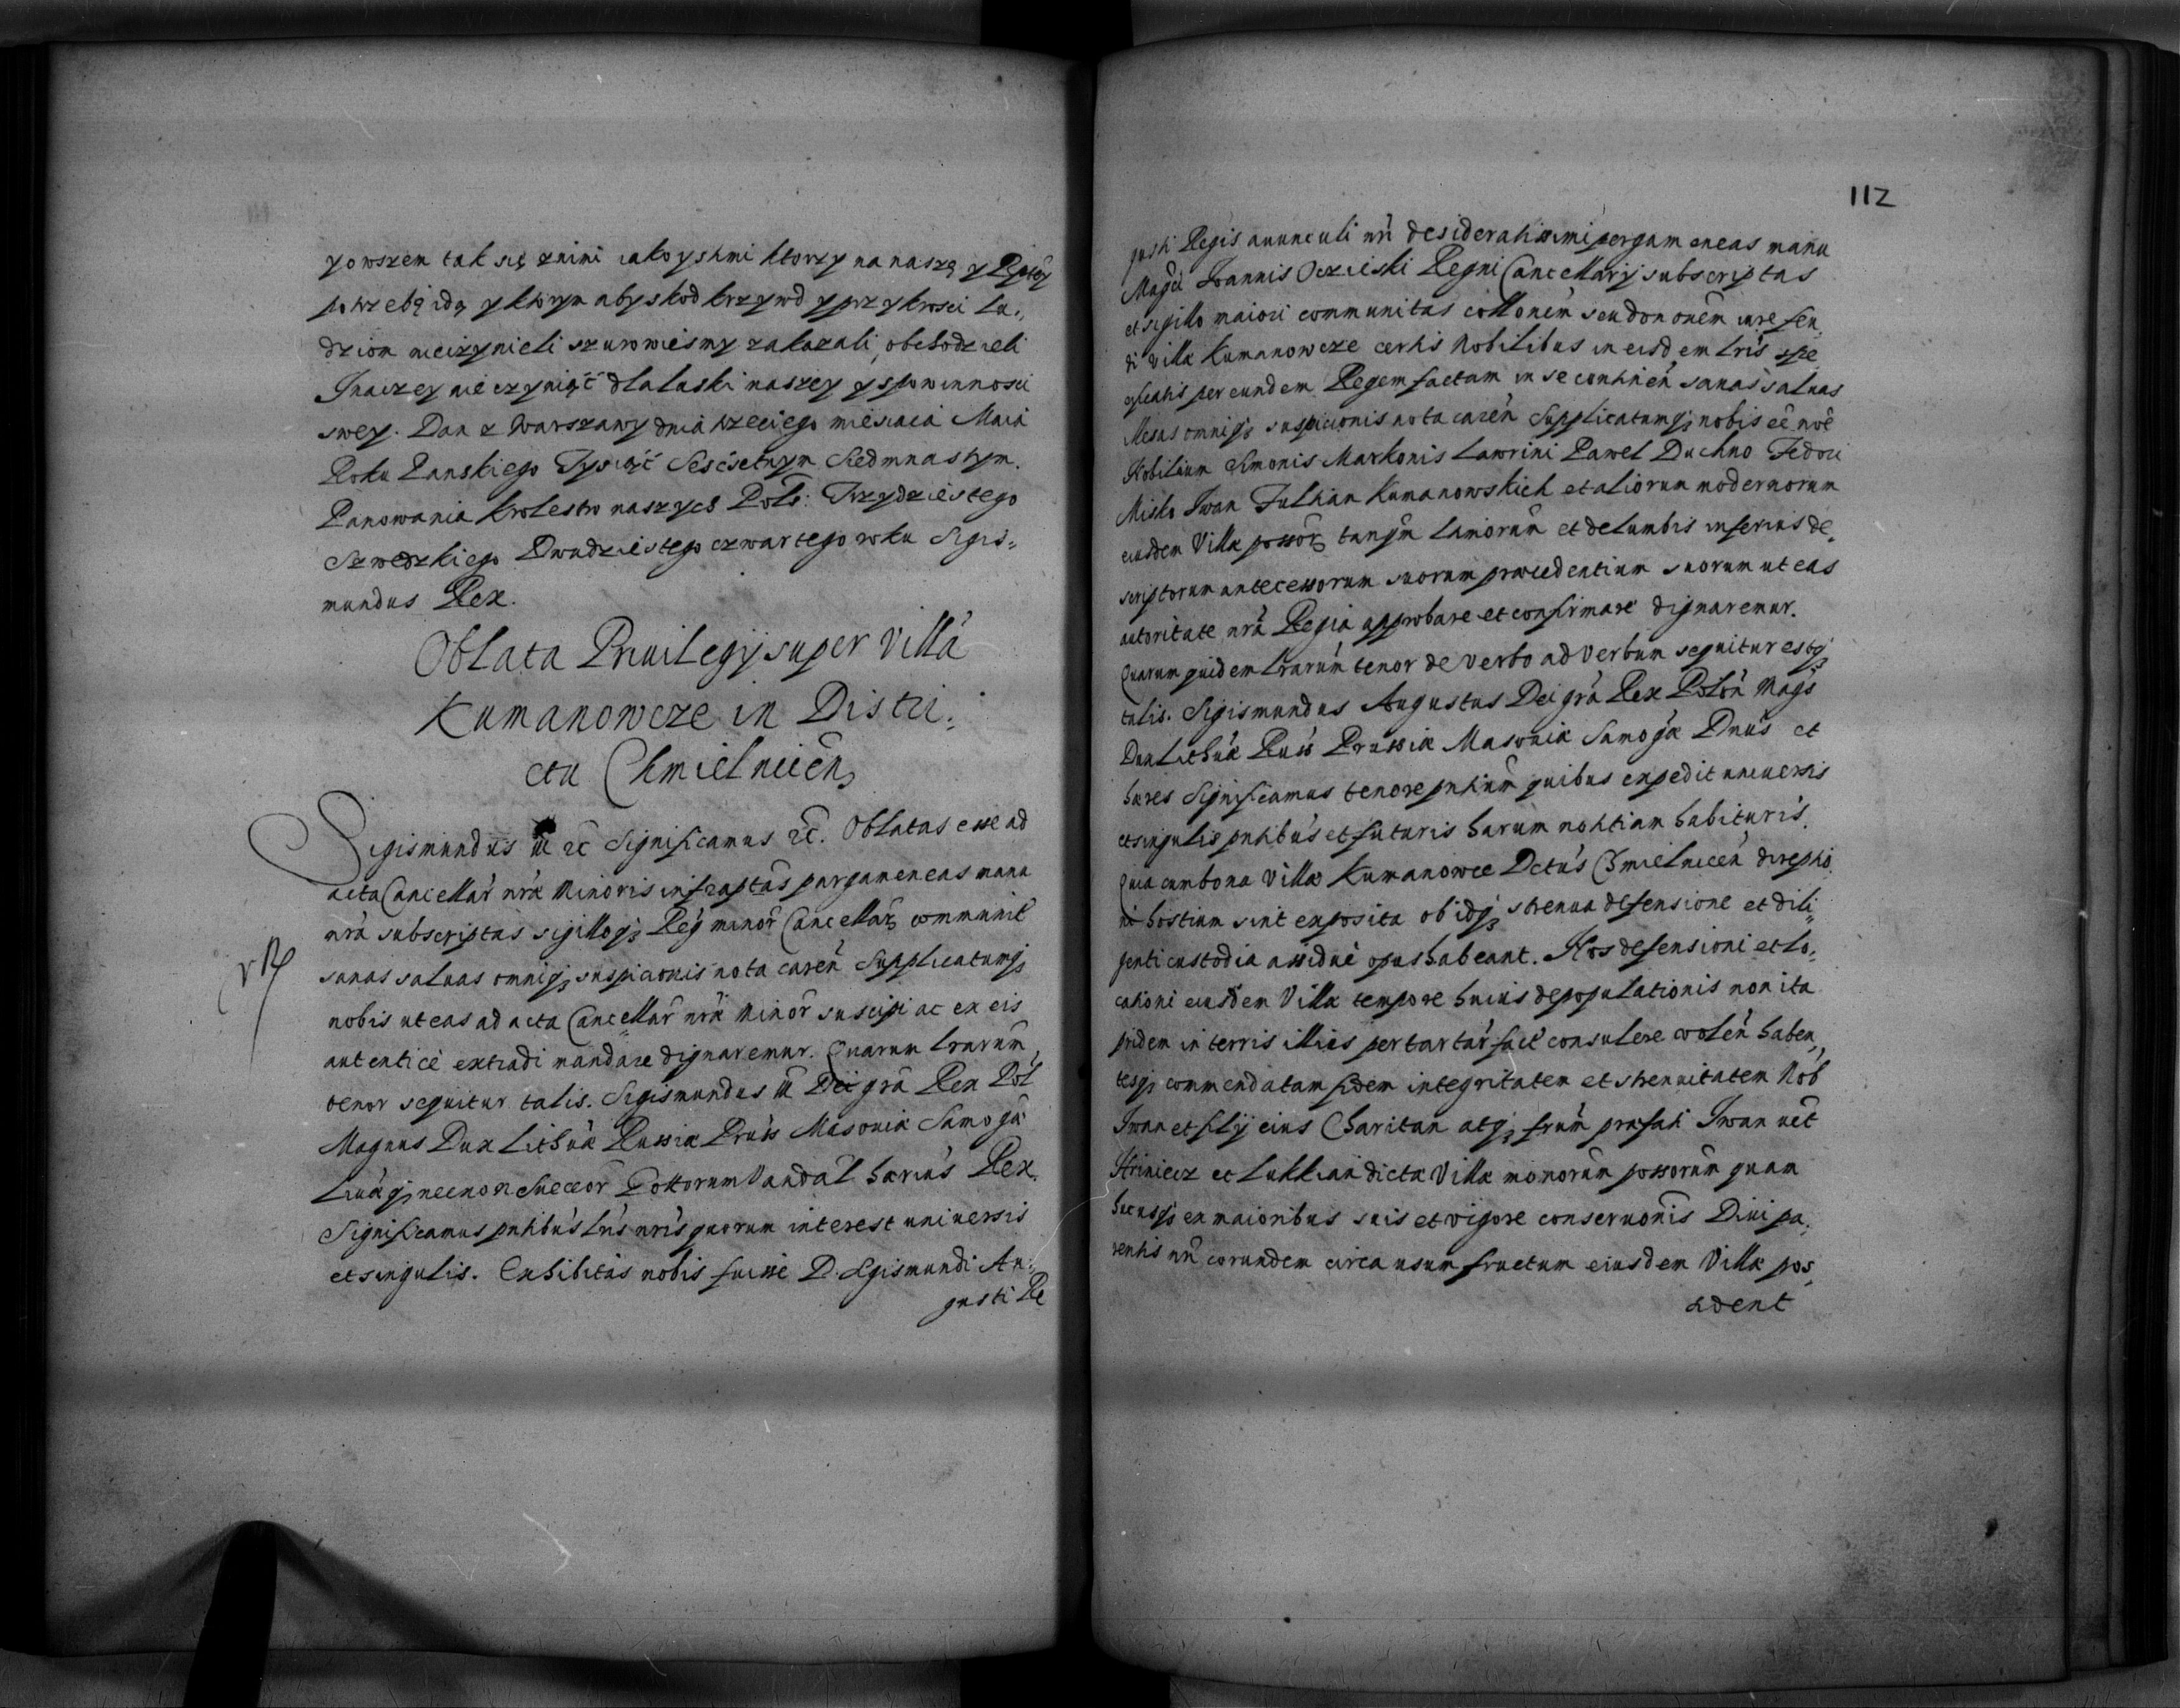 y owszem tak się znimi iako y stmi ktorzy na naszę y Rptey
potrzebę idą y ktorym aby szkod krzywd y przykrosci Lu„
dziom nieczynieli szurowiesmy zakazali, obchodzieli
Inaczey nie czyniąć dla łaski naszey y spowinnosci
swey. Dan z Warszawy dnia trzeciego miesiaca Maia
Roku Panskiego Tysiąć Sesćsetnym Siedmnastym.
Panowania Krolestw naszych Pols: Trzydziestego
Szwedzkiego Dwudziestego czwartego roku Sigis„
mundus Rex.
Oblata Priuilegij super Villa
Kumanowcze in Distri„
ctu Chmielnicen̄
Sigismundus III ec̄ Significamus ec̄. Oblatas esse ad
acta Cancellar̄ nr̄æ Minoris infrap̄tas pargameneas manu
nr̄a subscriptas sigilloq̨ Reg̃ minor̄ Cancellar̄ communit̄
sanas saluas omniq̨ suspicionis nota caren̄ Supplicatumq̨
nobis ut eas ad acta Cancellar̄ nr̄æ Minor̄ suscipi ac ex eis
autenticè extradi mandare dignaremur. Quarum lrarum̄
tenor sequitur talis. Sigismundus III Dei gr̄a Rex Pol̄
Magnus Dux Lithūæ Russiæ Prūss Masouiæ Samog̃æ
Liuāq̨ necnon Sueccor̄ Gottorum Vandal̄ hærius̄ Rex.
Significamus pn̄tibus lrīs nr̄is quorum interest uniuersis
et singulis. Exhibitas nobis fuisse D. Sigismundi Au„
gusti Re
112
gusti Regis auunculi nr̄i desideratissimi pergameneas manu
Mag̃ci Ioannis Oczieski Regni Cancellarij subscriptas
et sigillo maiori communitas collonem̄ seu donōnem iure feu„
di villæ Kumanowcze certis Nobilibus in eisdem lrīs spe„
cificatis per eundem Regem factam in se continen̄ sanas saluas
illesas omniq̨ suspicionis nota caren̄ Supplicatumq̨ nobis ē nōe
Nobilium Simonis Markonis Lawrini Pawel Duchno Fedori
Misko Iwan Julhian Kumanowskich et aliorum modernorum
eiusdem Villæ possor̄ tanq̃m
scriptorum antecessorum suorum præcedentium suorum ut eas
autoritate nr̄a Regia approbare et confirmare dignaremur.
Quarum quidem lrarum̄ tenor de verbo ad Verbum sequitur estq̨
talis. Sigismundus Augustus Dei gr̄a Rex Polon̄ Mag̃s
Dux Lithūæ Russ Prussiæ Masouiæ Samog̃æ Dnūs et
hæres Significamus tenore pn̄tium̄ quibus expedit uniuersis
et singulis pn̄tibus̄ et futuris harum notitiam habituris.
Quia cum bona Villæ Kumanowce Dctus̄ Chmielnicen̄ direptio
ni hostium sint exposita ob idq̨ strenua defensione et dili„
genti custodia assiduè opus habeant. Nos defensioni et lo„
cationi eiusdem Villæ tempore huius depopulationis non ita
pridem in terris illius per tartar̄ fact̄ consulere volen̄ haben„
tesq̨ commendatam fidem integritatem et strenuitatem Nob̄
Iwan et filij eius Charitan atq̨ frum̄ præfati Iwan uct̄
Hriniecz et Lukkian dictæ Villæ possorum̄ quam
hucusq̨ ex maioribus suis et vigore conseruōnis Diui pa„
rentis nr̄i eorundem circa usum fructum eiusdem Villæ pos„
sident